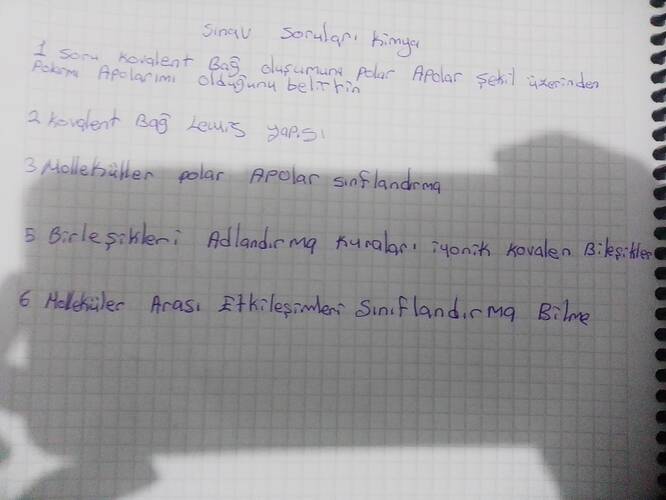 Sınav Soruları Kimya
1 Soru Kovalent Bağ oluşumunu polar Apolar Şekil üzerinden
Apolarımı olduğunu belirtin
2 Kovalent Bağ Lewis yapısı
3 Mollekûller polar Apolar sınflandırma
5 Birleşikleri Adlandırma Kuraları iyonik Kovalen Bileşikler
6 Molleküler Arası Etkileşimleri Sınıflandırma Bilme